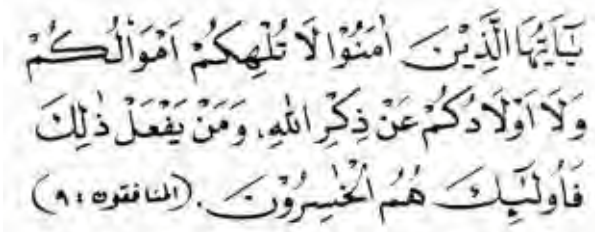 يَٰٓأَيُّهَا الَّذِيْنَ اٰمَنُوْا لَا تُلْهِكُمْ اَمْوَالُكُمْ
وَلَا اَوْلَادُكُمْ عَنْ ذِكْرِ اللهِ. وَمَنْ يَفْعَلْ ذٰلِكَ
فَاُولٰۤئِكَ هُمُ الْخٰسِرُوْنَ. (المنافقون : ٩)